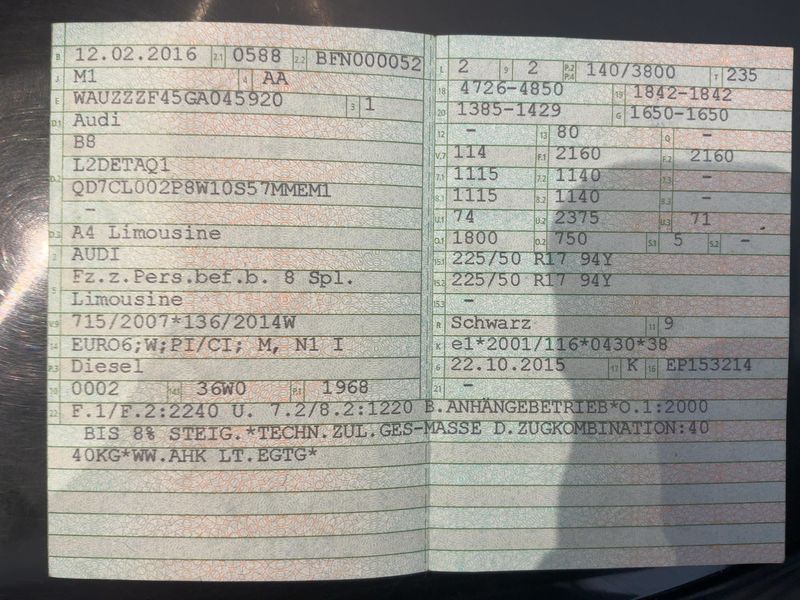 B 12.02.2016 2.1 0588 2.2 BFN000052
J M1 4 AA
E WAUZZZF45GA045920 3 1
D.1 Audi
B8
L2DETAQ1
D.2 QD7CL002P8W10S57MMEM1
–
D.3 A4 Limousine
2 AUDI
5 Fz.z.Pers.bef.b. 8 Spl.
Limousine
V.9 715/2007*136/2014W
14 EURO6;W;PI/CI; M, N1 I
P.3 Diesel
10 0002 14.1 36W0 P.1 1968
22 F.1/F.2:2240 U. 7.2/8.2:1220 B.ANHÄNGEBETRIEB*O.1:2000
BIS 8% STEIG.*TECHN.ZUL.GES-MASSE D.ZUGKOMBINATION:40
40KG*WW.AHK LT.EGTG*
L 2 9 2 P.2 P.4 140/3800 T 235
18 4726-4850 19 1842-1842
20 1385-1429 G 1650-1650
12 – 13 80 Q –
V.7 114 F.1 2160 F.2 2160
7.1 1115 7.2 1140 7.3 –
8.1 1115 8.2 1140 8.3 –
U.1 74 U.2 2375 U.3 71
O.1 1800 O.2 750 S.1 5 S.2 –
15.1 225/50 R17 94Y
15.2 225/50 R17 94Y
15.3 –
R Schwarz 11 9
K e1*2001/116*0430*38
6 22.10.2015 17 K 16 EP153214
21 –